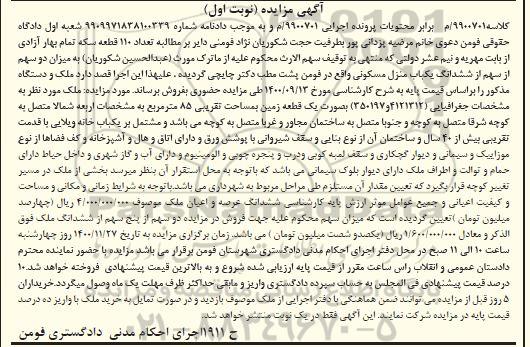 آگهی مزایده (نوبت اول)
کلاسه ۹۹۰۰۷۰۱/م برابر محتویات پرونده اجرایی ۹۹۰۰۷۰۱/م و به موجب دادنامه شماره ۹۹۰۹۹۷۱۸۳۸۱۰۰۳۳۹ شعبه اول دادگاه
حقوقی فومن دعوی خانم مرضیه یزدانی پور بطرفیت حجت شکوریان نژاد فومنی دایر بر مطالبه تعداد ۱۱۰ قطعه سکه تمام بهار آزادی
از بابت مهریه و نیم عشر دولتی که منتهی به توقیف سهم الارث محکوم علیه از ماترک مورث (عبدالحسین شکوریان) به میزان دو سهم
از سهم از ششدانگ یکباب منزل مسکونی واقع در فومن پشت مطب دکتر چایچی گردیده . علیهذا این اجرا قصد دارد ملک و دستگاه
مذکور را براساس قیمت پایه به شرح کارشناسی مورخ ۱۴۰۰/۰۹/۱۳ طی مزایده حضوری بفروش برساند. مورد مزایده: ملک مورد نظر به
مشخصات جغرافیایی (۴۱۲۱۳۱۲و۳۵۰۱۹۷) بصورت یک قطعه زمین بمساحت تقریبی ۸۵ مترمربع به مشخصات اربعه شمالا متصل به
کوچه شرقا متصل به کوچه و جنوبا متصل به ساختمان مجاور و غربا متصل به کوچه می باشد و مشتمل بر یکباب خانه ویلایی با قدمت
تقریبی بیش از ۴۰ سال و ساختمان آن از نوع بنایی و سقف شیروانی با پوشش ورق و دارای اتاق و هال و آشپزخانه و کف فضاها از نوع
موزاییک و سیمانی و دیوار کچکاری و سقف لمبه کوبی ودرب و پنجره چوبی و آلومینیوم و دارای آب و گاز شهری و داخل حیاط دارای
حمام و توالت و اطراف ملک دارای دیوار بلوک سیمانی می باشد که باتوجه به محل استقرار آن بنظر میرسد بخشی از ملک در مسیر
تغییر کوچه قرار بگیرد که تعیین مقدار آن مستلزم طی مراحل مربوط به شهرداری می باشد.باتوجه به شرایط زمانی و مکانی و مساحت
و کیفیت اعیانی و جمیع عوامل موثر ارزش پایه کارشناسی ششدانگ عرصه و اعیان ملک موصوف ۴/۰۰۰/۰۰۰/۰۰۰ ریال (چهارصد
میلیون تومان )تعیین گردیده است که میزان سهم محکوم علیه جهت فروش در مزایده دو سهم از پنج سهم از ششدانگ ملک فوق
الذکر و معادل ۱/۶۰۰/۰۰۰/۰۰۰ ریال (یکصدو شصت میلیون تومان ) می باشد. زمان برگزاری مزایده به تاریخ ۱۴۰۰/۱۱/۲۷ روز چهارشنبه
ساعت ۱۰ الی ۱۱ صبح در محل دفتر اجرای احکام مدنی دادگستری شهرستان فومن برقرار می باشد مزایده با حضور نماینده محترم
دادستان عمومی و انقلاب راس ساعت مقرر از قیمت پایه ارزیابی شده شروع و به بالاترین قیمت پیشنهادی فروخته خواهد شد.۱۰
درصد قیمت پیشنهادی فی المجلس به حساب سپرده دادگستری واریز و مابقی حداکثر ظرف مهلت یک ماه وصول میگردد.خریداران
۵ روز قبل از مزایده می توانند ضمن هماهنگی با دفتر اجرایی از ملک موصوف بازدید و در صورت تمایل به خرید ملک با واریز ده درصد
قیمت پایه در مزایده شرکت نمایند. این آگهی فقط در یک نوبت منتشر خواهد شد.
ح ۱۹۱۱ اجرای احکام مدنی دادگستری فومن
۰۲۱-۸۸۳۴۹۶۷۰-۵